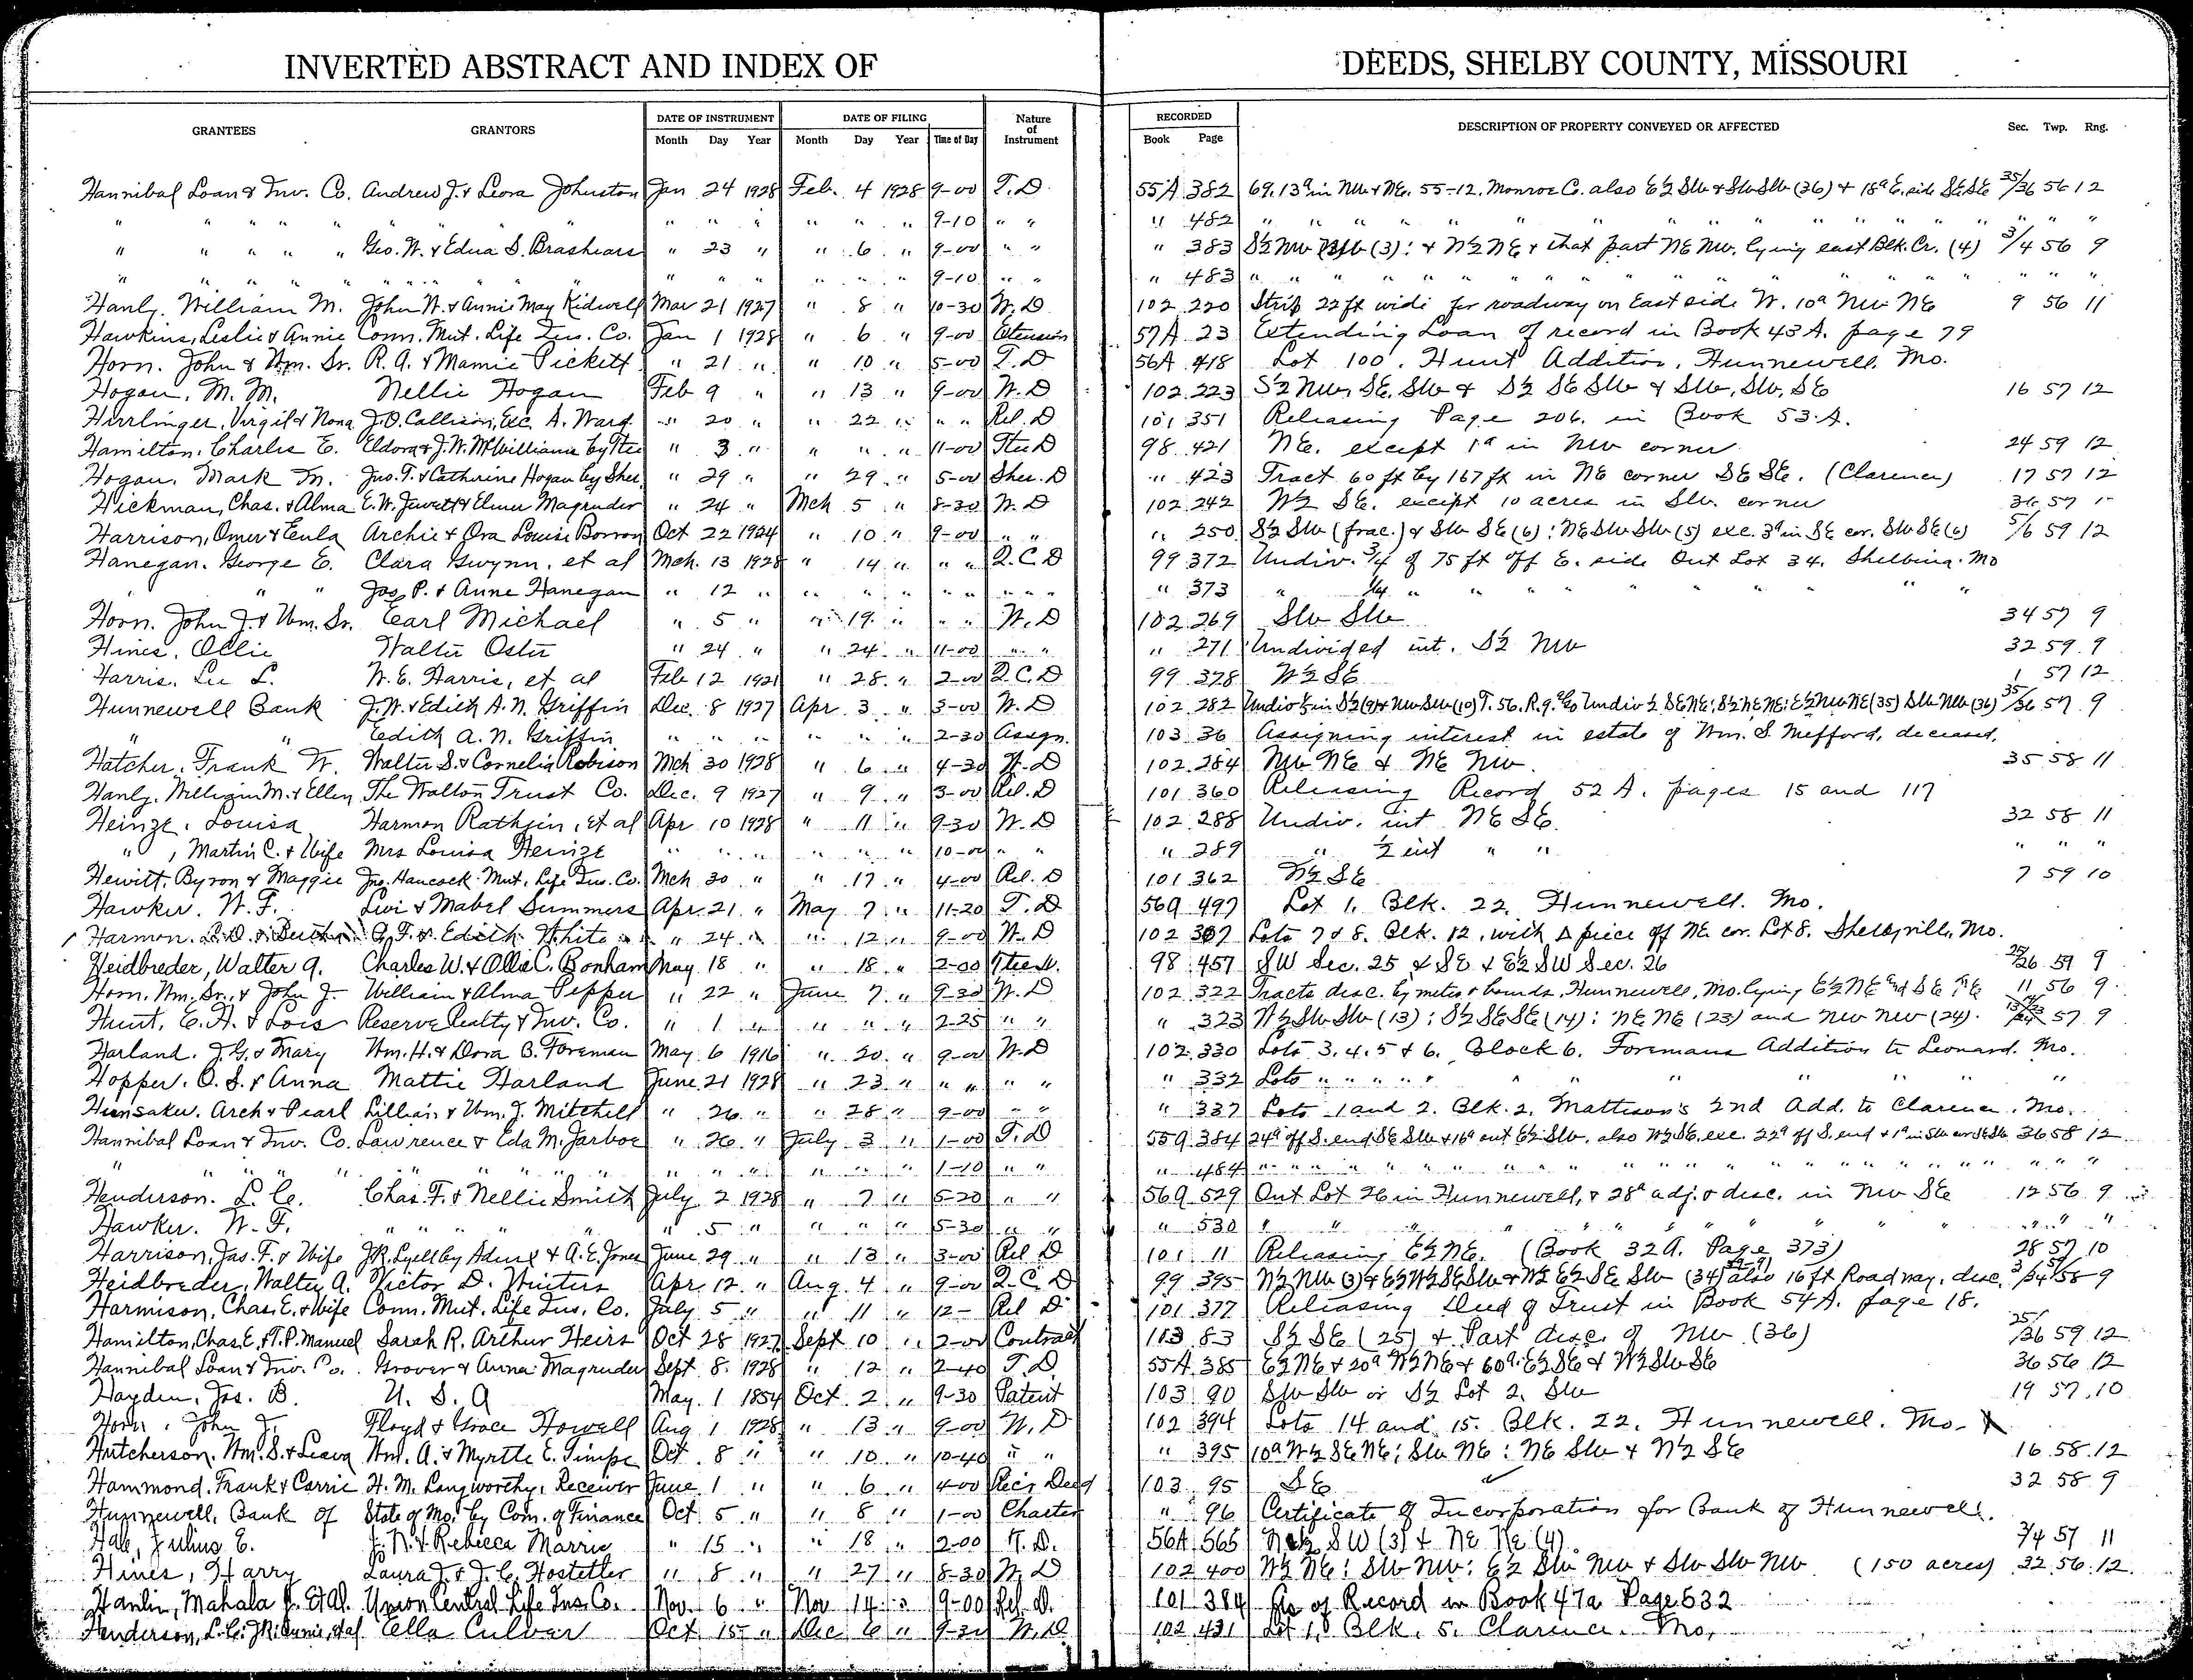 INVERTED ABSTRACT AND INDEX OF DEEDS, SHELBY COUNTY, MISSOURI
GRANTEES GRANTORS DATE OF INSTRUMENT DATE OF FILING Nature of Instrument RECORDED DESCRIPTION OF PROPERTY CONVEYED OR AFFECTED Sec. Twp. Rng.
Month Day Year Month Day Year Time of Day Book Page
Hannibal Loan & Inv. Co. Andrew J. & Leora Johnston Jan 24 1928 Feb. 4 1928 9-00 T.D. 55A 382 69.13a in NW & NE. 55-12. Monroe Co. also E½ SW & SW SW (36) & 18a E. side SE SE 35/36 56 12
" " " " " " " " " " " " " 9-10 " " " 482 " " " " " " " " " "
" " " " " Geo. W. & Edna S. Brashears " 23 " " 6 " 9-00 " " " 383 S½ NW (3): & N½ NE & that part NE NW. lying east Blk. Cr. (4) 3/4 56 9
" " " " " " " " " " " " " 9-10 " " " 483 " " " " " " " " " "
Hanly, William M. John W. & Annie May Kidwell Mar 21 1927 " 8 " 10-30 W.D 102 220 Strip 22 ft wide for roadway on East side W. 10a NW NE 9 56 11
Hawkins, Leslie & Annie Conn. Mut. Life Ins. Co. Jan 1 1928 " 6 " 9-00 Extension 57A 23 Extending Loan of record in Book 43A. page 79
Horn. John & Wm. Sr. R. A. & Mamie Pickett " 21 " " 10 " 5-00 T.D 56A 418 Lot 100. Hunt Addition, Hunnewell, Mo.
Hogan, M. M. Nellie Hogan Feb 9 " " 13 " 9-00 W.D 102 223 S½ NW, SE, SW & S½ SE SW & SW, SW, SE 16 57 12
Hurlinger, Virgil & Nona J. O. Callison, Exc. A. Ward " 20 " " 22 " " " Rel. D 101 351 Releasing Page 206. in Book 53A.
Hamilton, Charles E. Eldora & J. W. McWilliams by Tree " 3 " " " " 11-00 Tree D 98 421 NE. except 1a in NW corner 24 59 12
Hogan, Mark M. Jno. T. & Catherine Hogan by Sher. " 29 " " 29 " 5-00 Sher. D " 423 Tract 60 ft by 167 ft in NE corner SE SE. (Clarence) 17 57 12
Hickman, Chas. & Alma E. W. Jewett & Elmer Magruder " 24 " Mch 5 " 8-30 W.D 102 242 W½ SE. except 10 acres in SW. corner 36 57
Harrison, Omer & Eula Archie & Ora Louise Borron Oct 22 1924 " 10 " 9-00 " " " 250 S½ SW (frac.) & SW SE (6): NE SW SW (5) exc. 3a in SE cor. SW SE (6) 5/6 59 12
Hanegan. George E. Clara Gwynn. et al Mch. 13 1928 " 14 " " " Q.C.D 99 372 Undiv. 3/4 of 75 ft off E. side Out Lot 34. Shelbina. Mo
" " " Jas. P. & Anne Hanegan " 12 " " " " " " " " " " 373 " 1/4 " " " " " "
Horn. John J. & Wm. Sr. Earl Michael " 5 " " 19 " " " W.D 102 269 SW SW 34 57 9
Hines, Ollie Walter Oster " 24 " " 24 " 11-00 " " " 271 Undivided int. S½ NW 32 59 9
Harris. Lee L. W. E. Harris, et al Feb 12 1921 " 28 " 2-00 Q.C.D 99 378 W½ SE 1 57 12
Hunnewell Bank J. W. & Edith A. N. Griffin Dec. 8 1927 Apr. 3 " 3-00 W.D 102 282 in S½ (9) & NW SW (10) T. 56. R. 9. also Undiv ½ SE NE: S½ NE NE: E½ NW NE (35) SW NW (36) 35/36 57 9
" " Edith A. N. Griffin " " " " " " 2-30 Assgn. 103 36 Assigning interest in estate of Wm. S. Mefford, deceased.
Hatcher, Frank W. Walter S. & Cornelia Robison Mch 30 1928 " 6 " 4-30 W.D 102 284 NW NE & NE NW. 35 58 11
Hanly, William M. & Ellen The Walton Trust Co. Dec. 9 1927 " 9 " 3-00 Rel. D 101 360 Releasing Record 52 A. pages 15 and 117
Heinze, Louisa Harmon Rathjen, et al Apr 10 1928 " 11 " 9-30 W.D 102 288 Undiv. int NE SE. 32 58 11
" , Martin C. & Wife Mrs Louisa Heinze " " " " " " 10-00 " " " 289 " ½ int " " " " "
Hewitt, Byron & Maggie Jno. Hancock Mut. Life Ins. Co. Mch 30 " " 17 " 4-00 Rel. D 101 362 W½ SE 7 59 10
Hawker. W. F. Levi & Mabel Summers Apr. 21 " May 7 " 11-20 T.D 56a 497 Lot 1. Blk. 22. Hunnewell. Mo.
Harmon. L. D. & G. F. & Edith White " 24 " " 12 " 9-00 W.D 102 307 Lots 7 & 8. Blk. 12, with Δ piece off NE cor. Lot 8. Shelbyville, Mo.
Heidbreder, Walter A. Charles W. & Ollie C. Bonham May 18 " " 18 " 2-00 98 457 SW Sec. 25 & SE & E½ SW Sec. 26 25/26 59 9
Horn, Wm. Sr., & John J. William & Alma Pepper " 22 " June 7 " 9-30 W.D 102 322 Tracts desc. by metes & bounds, Hunnewell, Mo. lying E½ NE and SE NE 11 56 9
Hunt, E. A. & Lois Reserve Realty & Inv. Co. " 1 " " " " 2-25 " " " 323 N½ SW SW (13): S½ SE SE (14): NE NE (23) and NW NW (24). 57 9
Harland. J. G. & Mary Wm. H. & Dora B. Foreman May 6 1916 " 20 " 9-00 W.D 102 330 Lots 3, 4, 5 & 6. Block 6. Foremans Addition to Leonard. Mo.
Hopper. O. S. & Anna Mattie Harland June 21 1928 " 23 " " " " " " 332 Lots " " " " " " " " " "
Hunsaker. Arch & Pearl Lillian & Wm. J. Mitchell " 26 " " 28 " 9-00 " " " 337 Lots 1 and 2. Blk. 2. Mattison's 2nd Add. to Clarence, Mo.
Hannibal Loan & Inv. Co. Lawrence & Eda M. Jarboe " 26 " July 3 " 1-00 T.D 55a 384 24a off S. end SE SW & 16a out E½ SW, also W½ SE, exc. 22a off S. end & 1a in SW cor SE SW 36 58 12
" " " " " " " " " " " 1-10 " " " 484 " " " " " " " " " "
Henderson. L. C. Chas. F. & Nellie Smith July 2 1928 " 7 " 5-20 " " 56a 529 Out Lot 26 in Hunnewell, & 28a adj. & desc. in NW SE 12 56 9
Hawker. W. F. " " " " " 5 " " " " 5-30 " " " 530 " " " " " " " " " "
Harrison, Jas. F. & Wife J. R. Lyell by Adms & A. E. Jones June 29 " " 13 " 3-00 Rel D 101 11 Releasing E½ NE. (Book 32 A. Page 373) 28 57 10
Heidbreder, Walter A. Victor D. Winters Apr. 12 " Aug. 4 " 9-00 Q.C.D 99 395 W½ NW (3) & E½ W½ SE SW & W½ E½ SE SW (34) also 16 ft Roadway, desc. 3/34 58 9
Harmison, Chas. E. & Wife Conn. Mut. Life Ins. Co. July 5 " " 11 " 12- Rel D 101 377 Releasing Deed of Trust in Book 54A. page 18.
Hamilton, Chas. E. & T. P. Manuel Sarah R. Arthur Heirs Oct 28 1927 Sept 10 " 2-00 Contract 103 83 S½ SE (25) & Part desc. of NW (36) 25/36 59 12
Hannibal Loan & Inv. Co. Grover & Anna Magruder Sept. 8. 1928 " 12 " 2-40 T.D. 55A 385 E½ NE & 20a W½ NE & 60a E½ SE & W½ SW SE 36 56 12
Hayden, Jos. B. U. S. A May 1 1854 Oct. 2 " 9-30 Patent 103 90 SW SW or S½ Lot 2, SW 19 57 10
Horn, John J. Floyd & Grace Howell Aug 1 1928 " 13 " 9-00 W.D 102 394 Lots 14 and 15. Blk. 22. Hunnewell. Mo.
Hutcherson. Wm. S. & Leava Wm. A. & Myrtle E. Timpe Oct. 8 " " 10 " 10-40 " " " 395 10a W½ SE NE; SW NE: NE SW & N½ SE 16 58 12
Hammond. Frank & Carrie H. M. Langworthy, Receiver June 1 " " 6 " 4-00 Rec's Deed 103 95 SE 32 58 9
Hunnewell, Bank of State of Mo. by Com. of Finance Oct 5 " " 8 " 1-00 Charter " 96 Certificate of Incorporation for Bank of Hunnewell.
Hale, Julius E. J. N. & Rebecca Morris " 15 " " 18 " 2-00 T.D. 56A 565 SW (3) & NE NE (4) 3/4 57 11
Hines, Harry Laura J. & J. C. Hostetter " 8 " " 27 " 8-30 W.D 102 400 W½ NE: SW NW: E½ SW NW & SW SW NW (150 acres) 32 56 12.
Hanlin, Mahala J. Et Al. Union Central Life Ins. Co. Nov. 6 " Nov 14 " 9-00 Rel. D. 101 384 As of Record in Book 47a Page 632
Henderson, L. C. et al Ella Culver Oct 15 " Dec 6 " 9-30 W.D 102 431 Lot 1, Blk. 5. Clarence. Mo.